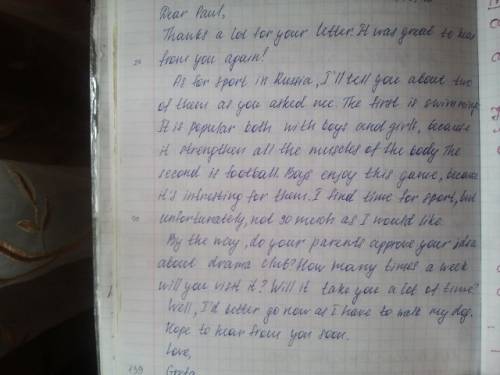 Dear Paul,
Thanks a lot for your letter. It was great to hear
20 from you again!
As for sport in Russia, I'll tell you about two
of them as you asked me. The first is swimming.
It is popular both with boys and girls, because
it strengthen all the muscles of the body. The
second is football. Boys enjoy this game, because
it's interesting for them. I find time for sport, but
unfortunately, not so much as I would like.
By the way, do your parents approve your idea
about drama club? How many times a week
will you visit it? Will it take you a lot of time?
Well, I'd better go now as I have to walk my dog.
Hope to hear from you soon.
Love,
139 Greta